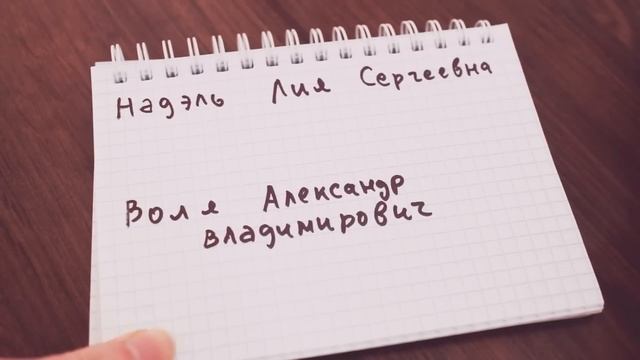 Надэль Лия Сергеевна
Воля Александр
Владимирович